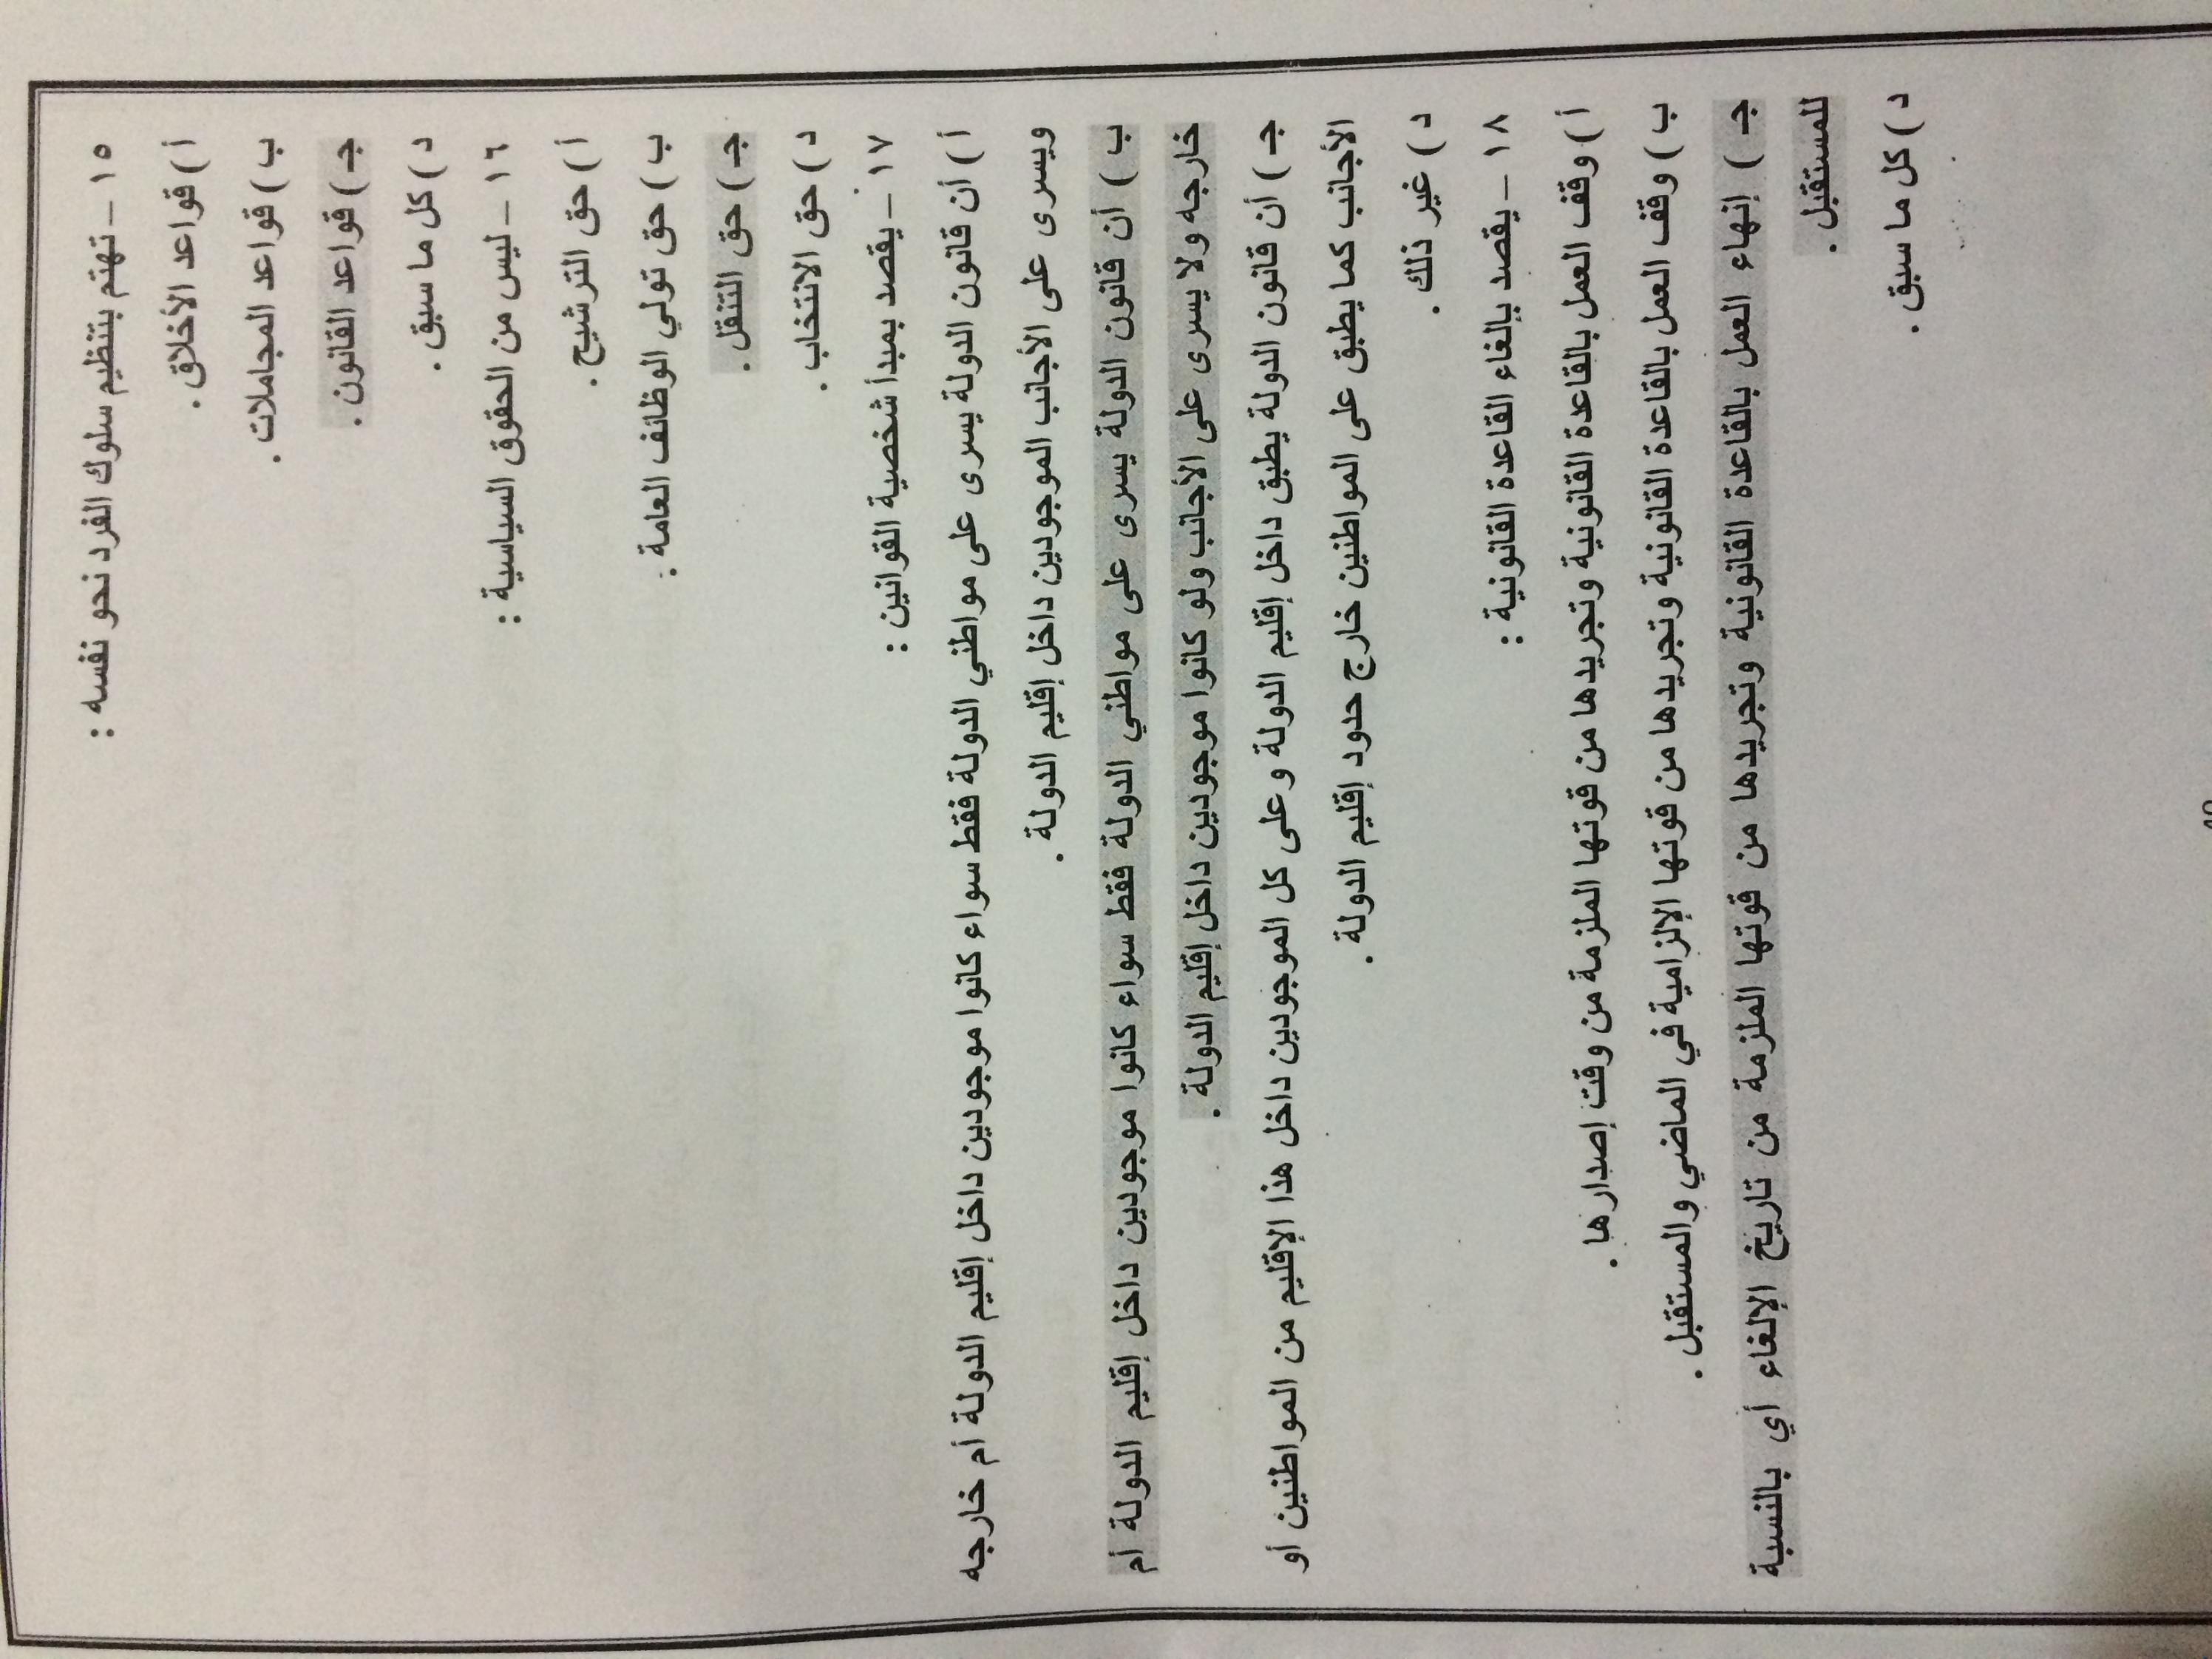 ١٥ – تهتم بتنظيم سلوك الفرد نحو نفسه :
أ ) قواعد الأخلاق .
ب ) قواعد المجاملات .
جـ ) قواعد القانون .
د ) كل ما سبق .
١٦ – ليس من الحقوق السياسية :
أ ) حق الترشيح .
ب ) حق تولي الوظائف العامة .
جـ ) حق التنقل .
د ) حق الانتخاب .
١٧ – يقصد بمبدأ شخصية القوانين :
أ ) أن قانون الدولة يسرى على مواطني الدولة فقط سواء كانوا موجودين داخل إقليم الدولة أم خارجه
ويسرى على الأجانب الموجودين داخل إقليم الدولة .
ب ) أن قانون الدولة يسرى على مواطني الدولة فقط سواء كانوا موجودين داخل إقليم الدولة أم
خارجه ولا يسرى على الأجانب ولو كانوا موجودين داخل إقليم الدولة .
جـ ) أن قانون الدولة يطبق داخل إقليم الدولة وعلى كل الموجودين داخل هذا الإقليم من المواطنين أو
الأجانب كما يطبق على المواطنين خارج حدود إقليم الدولة .
د ) غير ذلك .
١٨ – يقصد بإلغاء القاعدة القانونية :
أ ) وقف العمل بالقاعدة القانونية وتجريدها من قوتها الملزمة من وقت إصدارها .
ب ) وقف العمل بالقاعدة القانونية وتجريدها من قوتها الإلزامية في الماضي والمستقبل .
جـ ) إنهاء العمل بالقاعدة القانونية وتجريدها من قوتها الملزمة من تاريخ الإلغاء أي بالنسبة
للمستقبل .
د ) كل ما سبق .